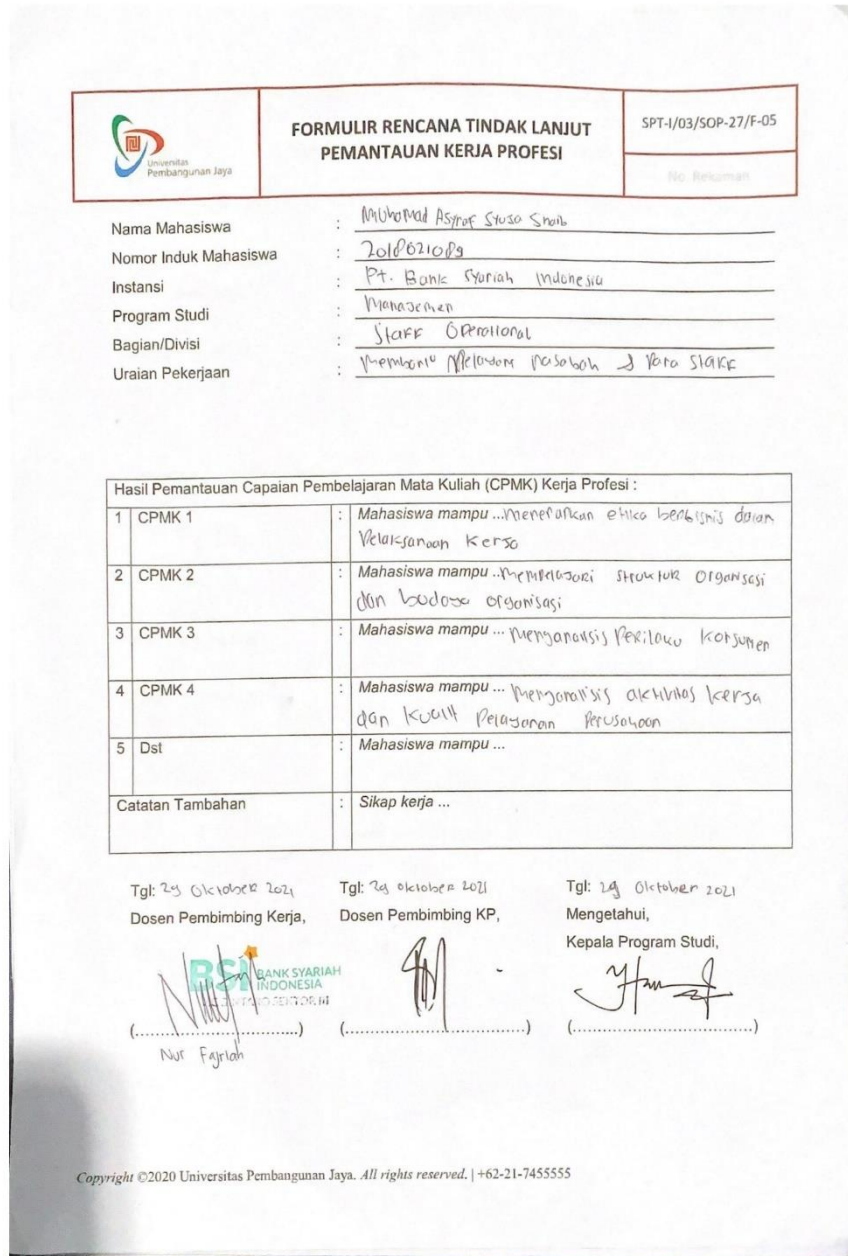 Universitas
Pembangunan Jaya
FORMULIR RENCANA TINDAK LANJUT
PEMANTAUAN KERJA PROFESI
SPT-I/03/SOP-27/F-05
No. Rekaman
Nama Mahasiswa : Muhomad Asyrof
Nomor Induk Mahasiswa : 2018021089
Instansi : Pt. Bank Syariah Indonesia
Program Studi : Manajemen
Bagian/Divisi : Staff Operational
Uraian Pekerjaan : Membantu Melayani nasabah & Para Staff
Hasil Pemantauan Capaian Pembelajaran Mata Kuliah (CPMK) Kerja Profesi :
1 CPMK 1 : Mahasiswa mampu ... menerapkan etika berbisnis dalam
Pelaksanaan Kerja
2 CPMK 2 : Mahasiswa mampu .. mempelajari struktur Organisasi
dan budaya organisasi
3 CPMK 3 : Mahasiswa mampu ... Menganalisis Perilaku Konsumen
4 CPMK 4 : Mahasiswa mampu ... Menganalisis aktivitas kerja
dan Pelayanan Perusahaan
5 Dst : Mahasiswa mampu ...
Catatan Tambahan : Sikap kerja ...
Tgl: 29 Oktober 2021 Tgl: 29 oktober 2021 Tgl: 29 Oktober 2021
Dosen Pembimbing Kerja, Dosen Pembimbing KP, Mengetahui,
Kepala Program Studi,
BSI BANK SYARIAH
INDONESIA
(..............................) (..............................) (..............................)
Nur Fajriah
Copyright ©2020 Universitas Pembangunan Jaya. All rights reserved. | +62-21-7455555